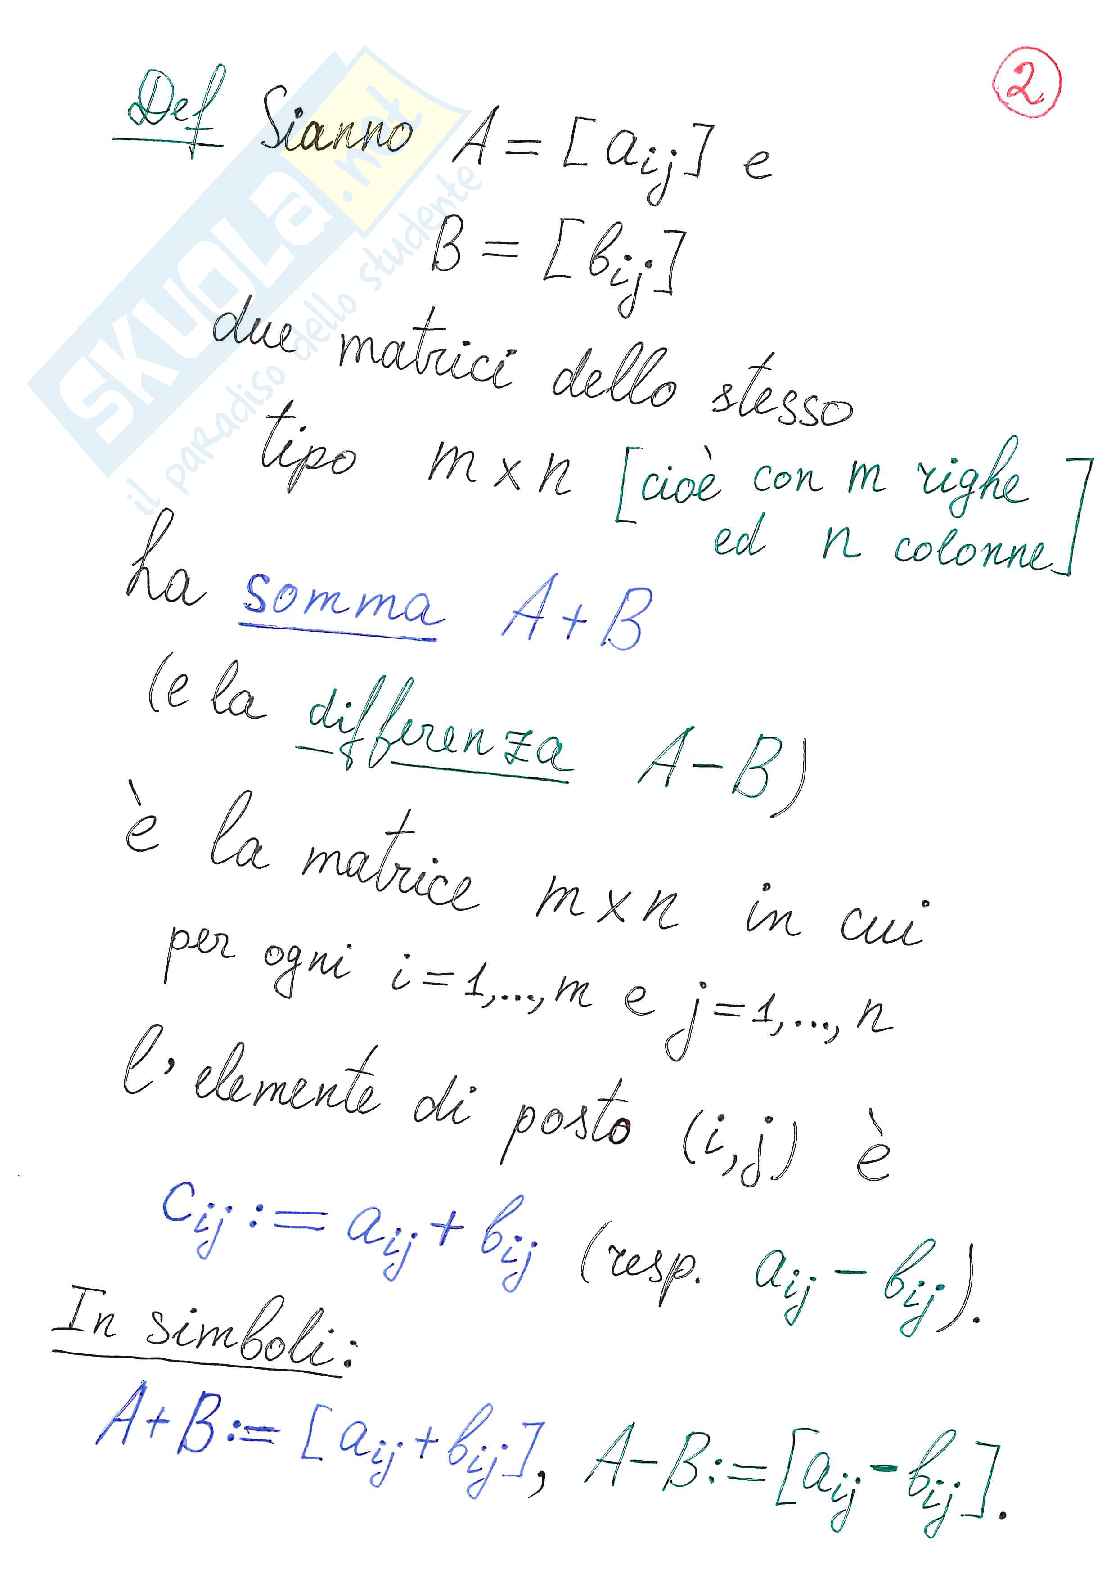 2
Def Sianno A = [aij] e
B = [bij]
due matrici dello stesso
tipo m x n [cioè con m righe
ed n colonne]
ha somma A + B
(e la differenza A - B)
è la matrice m x n in cui
per ogni i = 1,..., m e j = 1,..., n
l'elemente di posto (i,j) è
cij := aij + bij (resp. aij - bij).
In simboli:
A + B := [aij + bij], A - B := [aij - bij].
SKUOLA.net
il paradiso dello studente